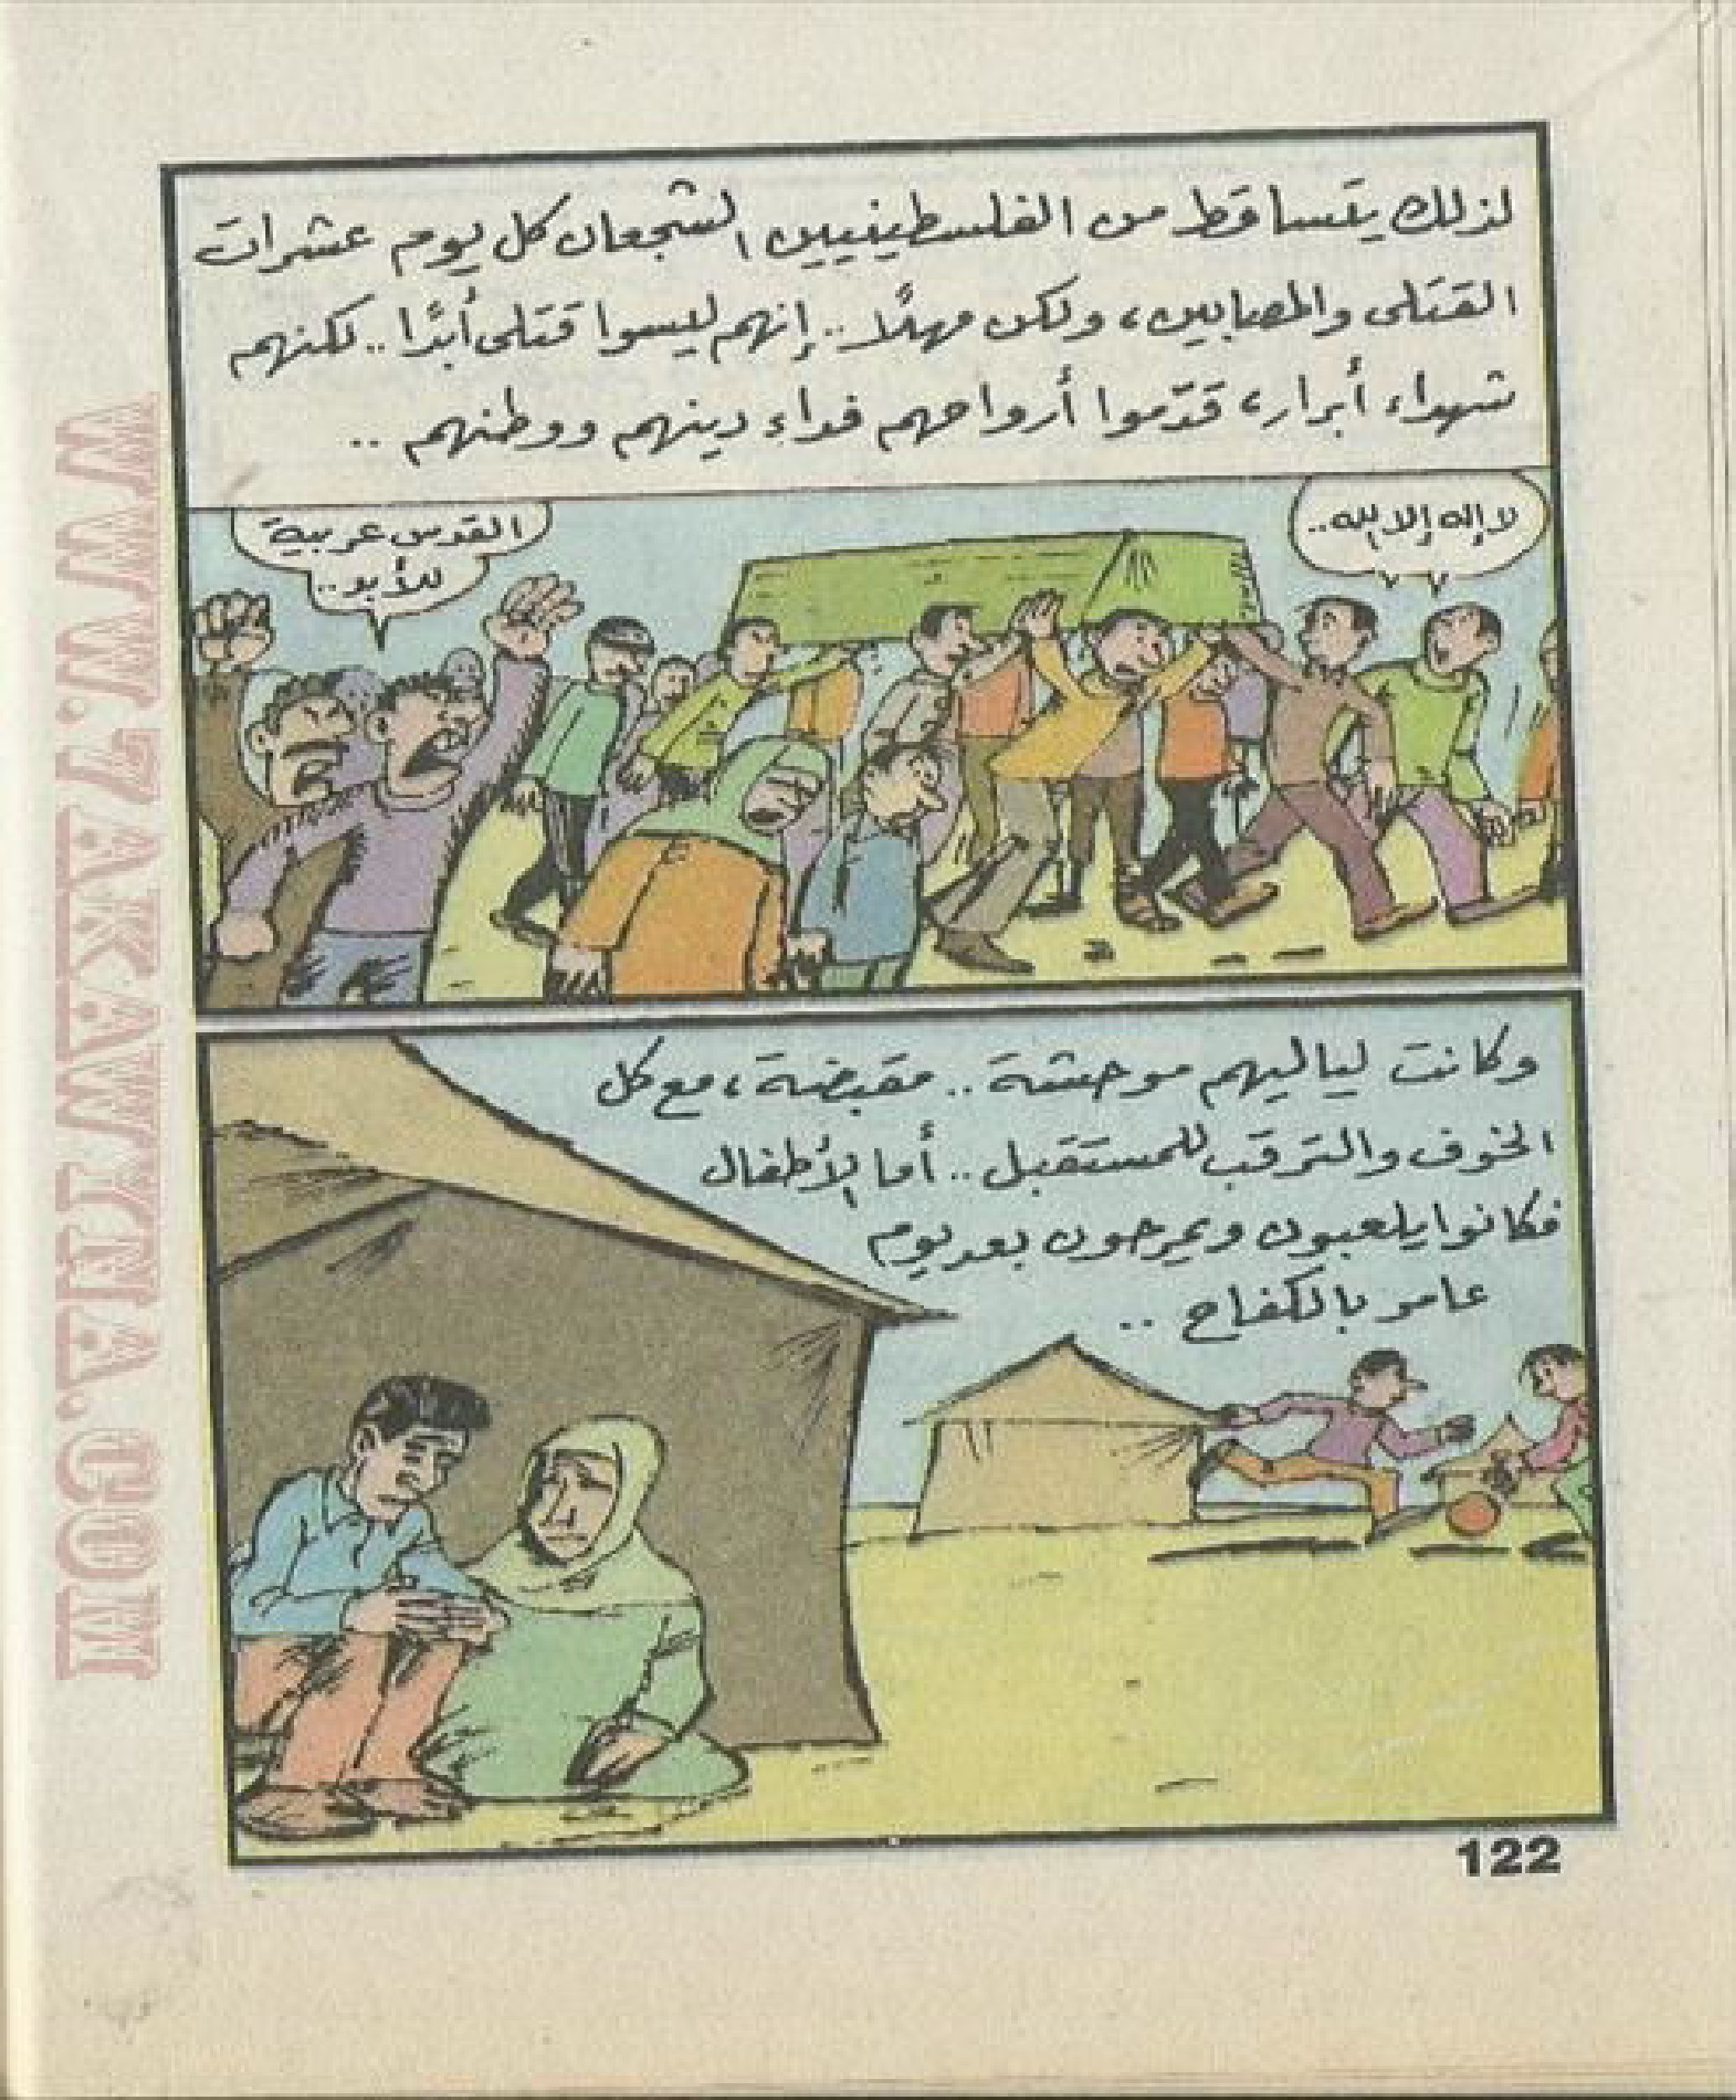 لذلك يتساقط من الفلسطينيين الشجعان كل يوم عشرات
القتلى والمصابين، ولكن مهلًا.. إنهم ليسوا قتلى أبدًا.. لكنهم
شهداء أبرار، قدّموا أرواحهم فداء دينهم ووطنهم..
لا إله إلا الله..
القدس عربية
للأبد..
وكانت لياليهم موحشة.. مقبضة، مع كل
الخوف والترقب للمستقبل.. أما الأطفال
فكانوا يلعبون ويمرحون بعد يوم
عامر بالكفاح..
122
WWW.7AKAWITNA.COM